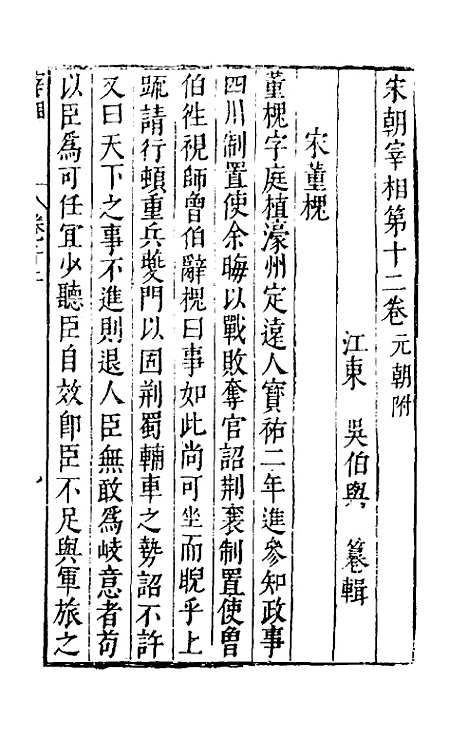 宋朝宰相第十二卷元朝附
江東 吳伯與 纂輯
宋董槐
董槐字庭植濠州定遠人寶祐二年進參知政事
四川制置使余晦以戰敗奪官詔荆襄制置使魯
伯徃視師魯伯辭槐曰事如此尚可坐而睨乎上
疏請行頓重兵夔門以固荆蜀輔車之勢詔不許
又曰天下之事不進則退人臣無敢爲岐意者苟
以臣爲可任宜少聽臣自效卽臣不足與軍旅之